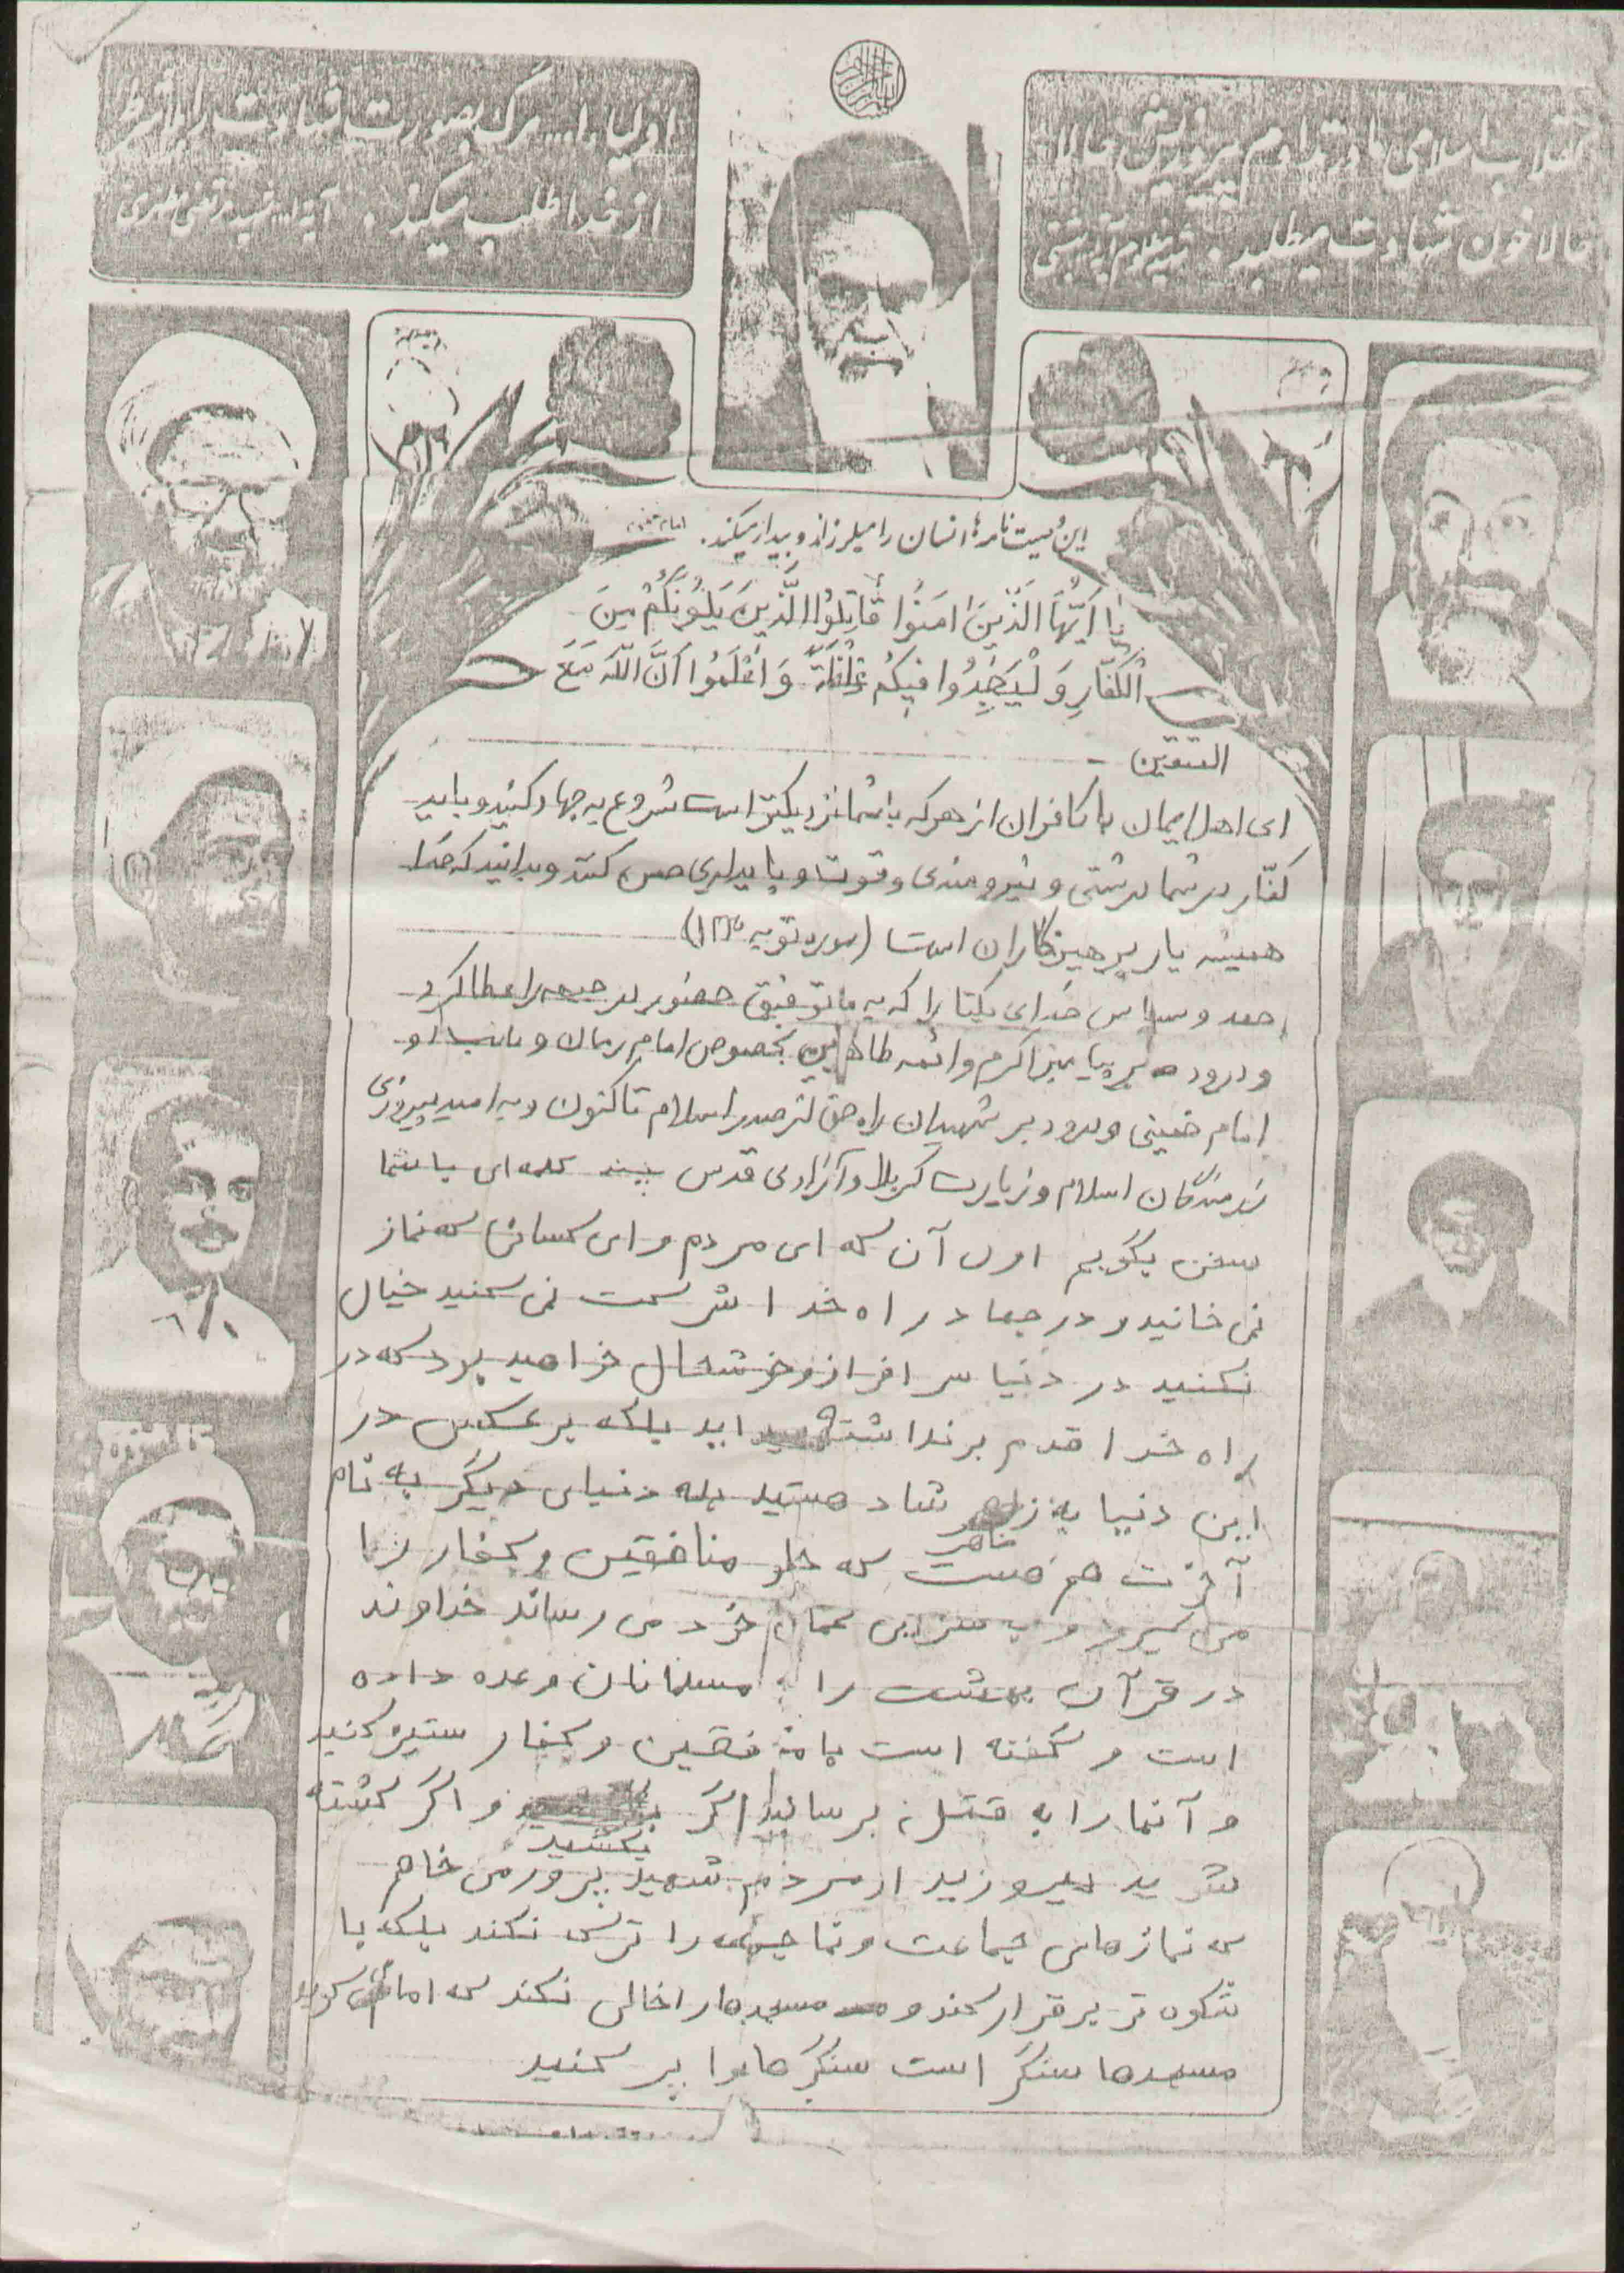 انقلاب اسلامی ما در تداوم پیروزیش
کالا خون شهادت میطلبد.
اولیاء ا... مرگ بصورت شهادت را
از خدا طلب میکنند.
این وصیت نامه‌ها انسان را میلرزاند و بیدار میکند. امام خمینی
یٰا اَیُّهَا الَّذینَ امَنُوا قٰاتِلُوا الَّذینَ یَلُونَکُمْ مِنَ
اَلْکُفّٰارِ وَ لْیَجِدُوا فیٖکُمْ غِلْظَةً وَ اعْلَمُوا اَنَّ اللّٰهَ مَعَ
المتقین
ای اهل ایمان با کافران از هر که با شما نزدیکتر است شروع به جهاد کنید و باید
کفّار در شما درشتی و نیرومندی و قوت و پایداری حس کنند و بدانید که خدا
همیشه یار پرهیزکاران است (سوره توبه ۱۲۳)
حمد و سپاس خدای یکتا را که به ما توفیق حضور در جبهه را عطا کرد
و درود بر پیامبر اکرم و ائمه طاهرین بخصوص امام زمان و نایب او
امام خمینی و درود بر شهیدان راه حق از صدر اسلام تا کنون و به امید پیروزی
رزمندگان اسلام و زیارت کربلا و آزادی قدس چند کلمه ای با شما
سخن بگویم اول آن که ای مردم و ای کسانی که نماز
نمی خانید و در جهاد در راه خدا شرکت نمی کنید خیال
نکنید در دنیا سر افراز و خوشحال خواهید بود که در
راه خدا قدم بر نداشته اید بلکه بر عکس در
این دنیا به ظاهر شاد هستید بله دنیای دیگر به نام
آخرت هم هست که جلو منافقین و کفار را
می گیرد و به سزایی عمال خود می رساند خداوند
در قرآن بهشت را به مسلمانان وعده داده
است و گفته است با منافقین و کفار ستیز کنید
و آنها را به قتل برسانید اگر بکشید و اگر کشته
شوید پیروزید از مردم شهید پرور می خاهم
که نمازهای جماعت و نماز جمعه را ترک نکند بلکه با
شکوه تر برقرار کند و مسجدها را خالی نکند که امام می گوید
مسجدها سنگر است سنگرها را پر کنید